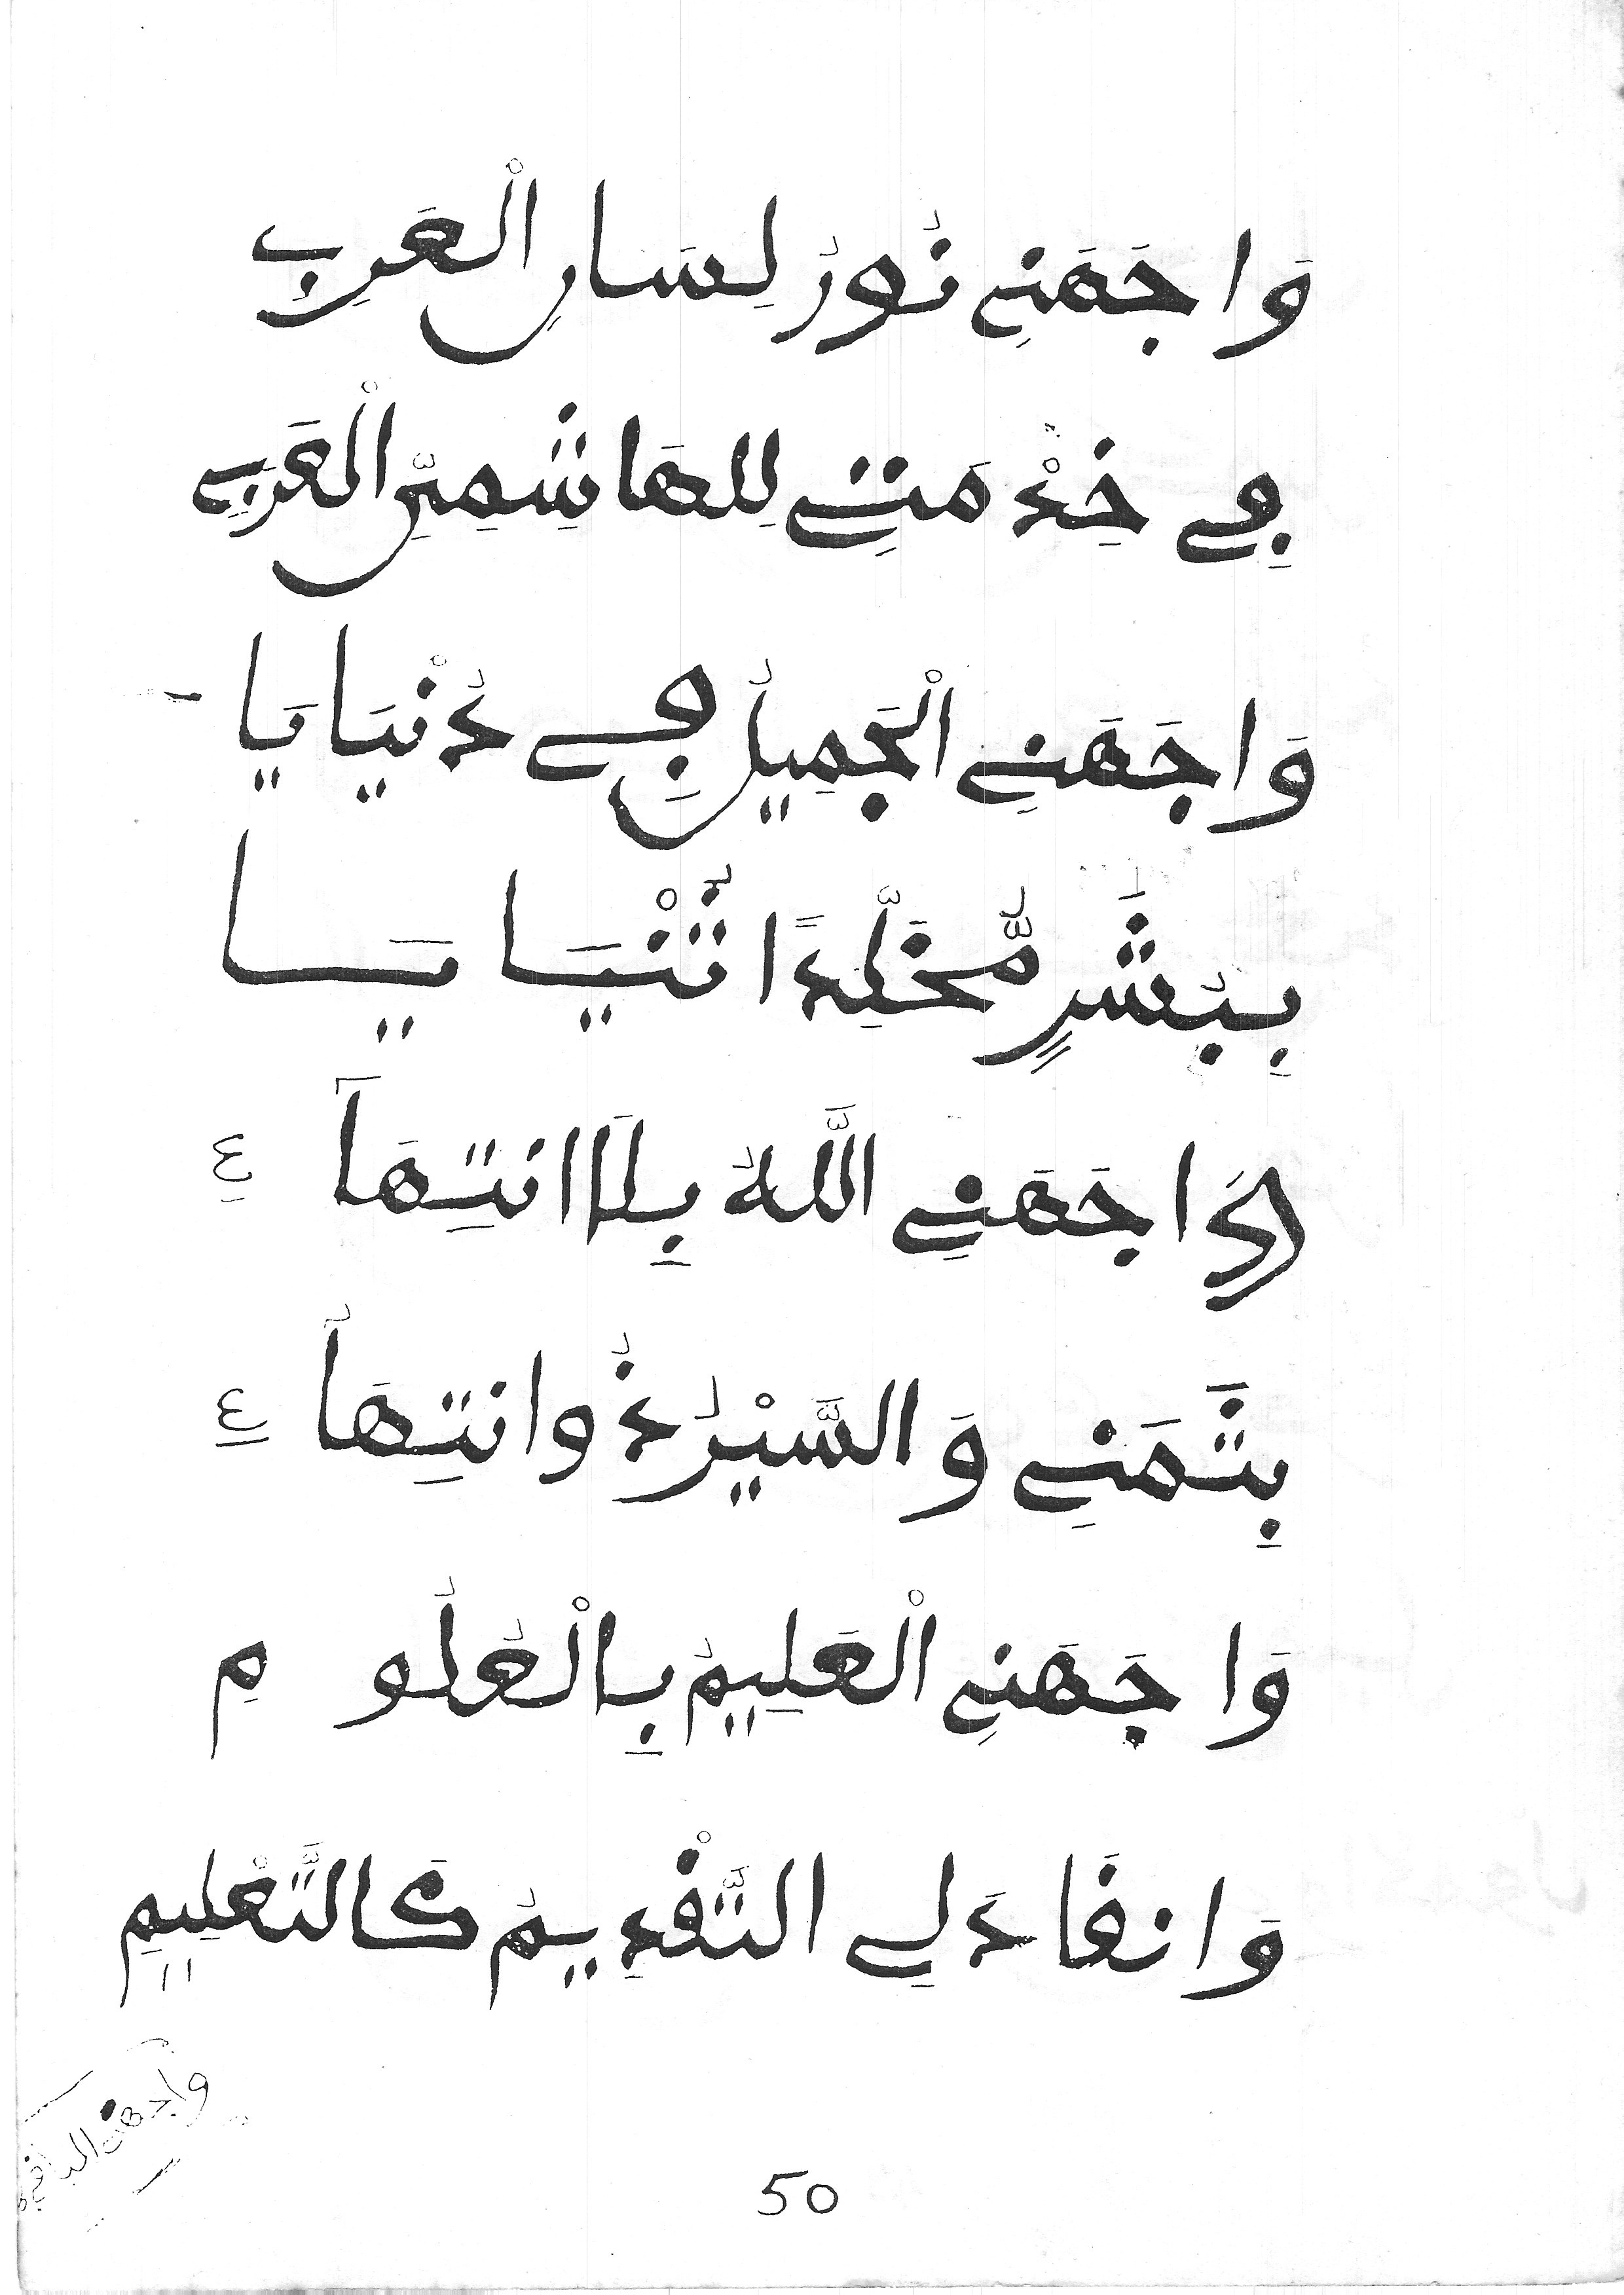 وَاجَهَنِي نُورُ لِسَانِ الْعَرَبِ
فِي خِدْمَتِي لِلهَاشِمِيِّ الْعَرَبِي
وَاجَهَنِي الْجَمِيلُ فِي دُنْيَايَا
بِبُشَرٍ مُّخَلِّدًا ثُنْيَايَا
وَاجَهَنِي اللَّهُ بِلَا انتِهَآءِ
بِثَمَنِي وَالسَّيْرُ ذُو انتِهَاءٍ
وَاجَهَنِي الْعَلِيمُ بِالْعُلُومِ
وَانقَادَ لِي التَّقْدِيمُ كَالتَّعْلِيمِ
واجهني
50